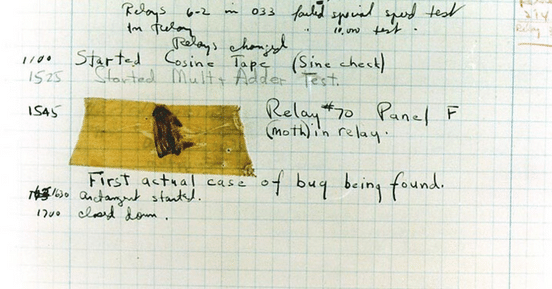 Relays 6-2 in 033 failed special speed test
In Relay " 10.000 test.
Relays changed
1100 Started Cosine Tape (Sine check)
1525 Started Mult+Adder Test.
1545 Relay #70 Panel F
(moth) in relay.
First actual case of bug being found.
1630 arctangent started.
1700 closed down.
Relay